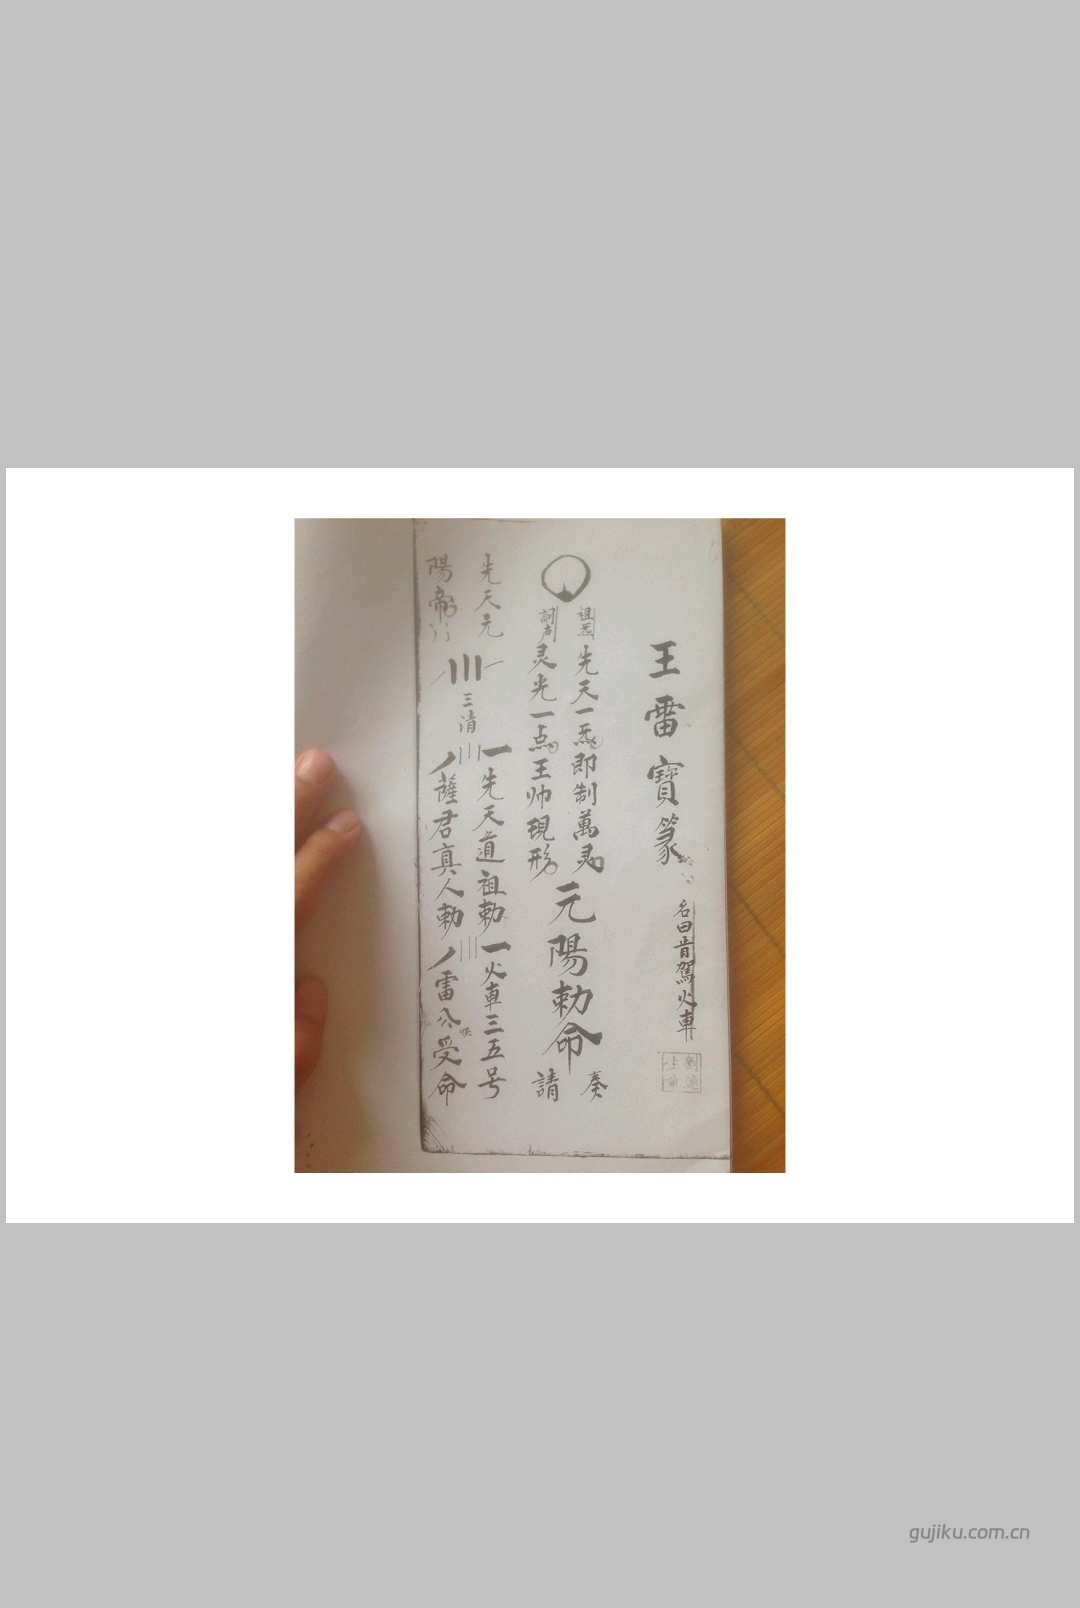 王雷寶篆
名曰肯駕火車
祖炁
先天一炁即制萬灵
詞启
灵光一点王帅現形
元陽勅命
奏
請
先天元
陽帝
三清
一先天道祖勅
一火車三五号
丿薩君真人勅
丿雷公受命
gujiku.com.cn